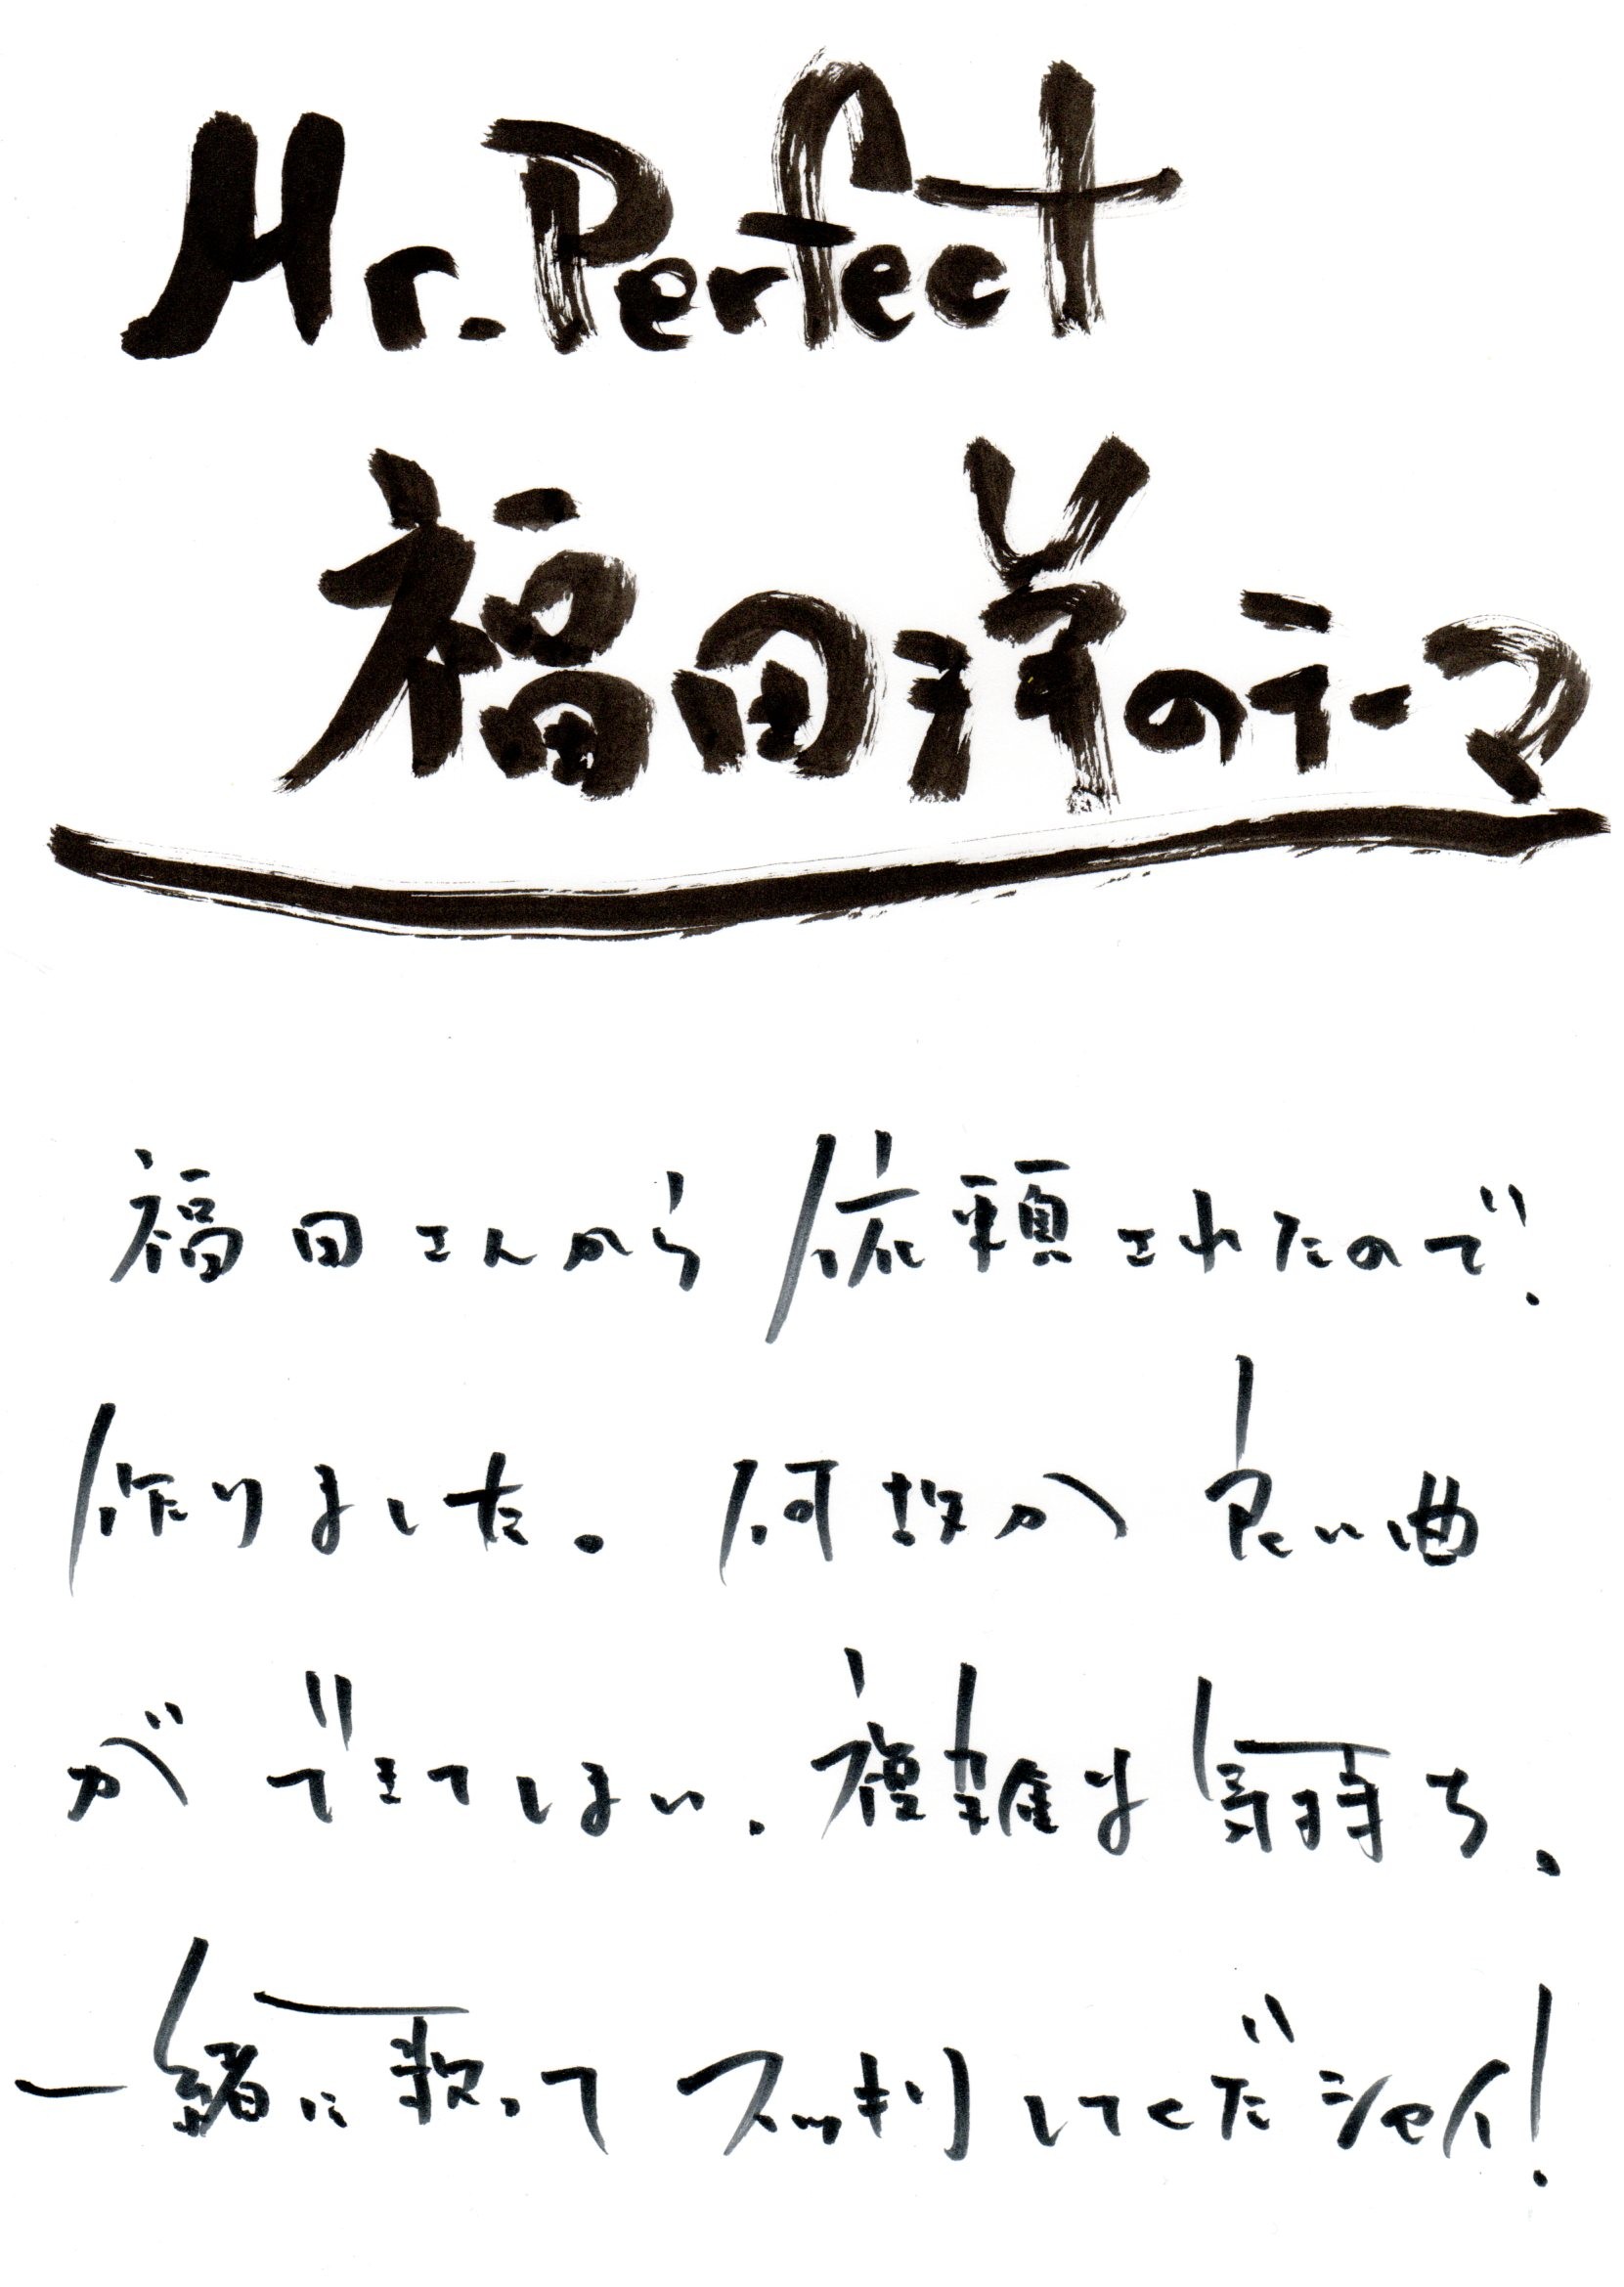 Mr. Perfect
福田洋のテーマ
福田さんから依頼されたので、
作りました。何故か良い曲
ができてしまい、複雑な気持ち。
一緒に歌ってスッキリしてくだシャイ!